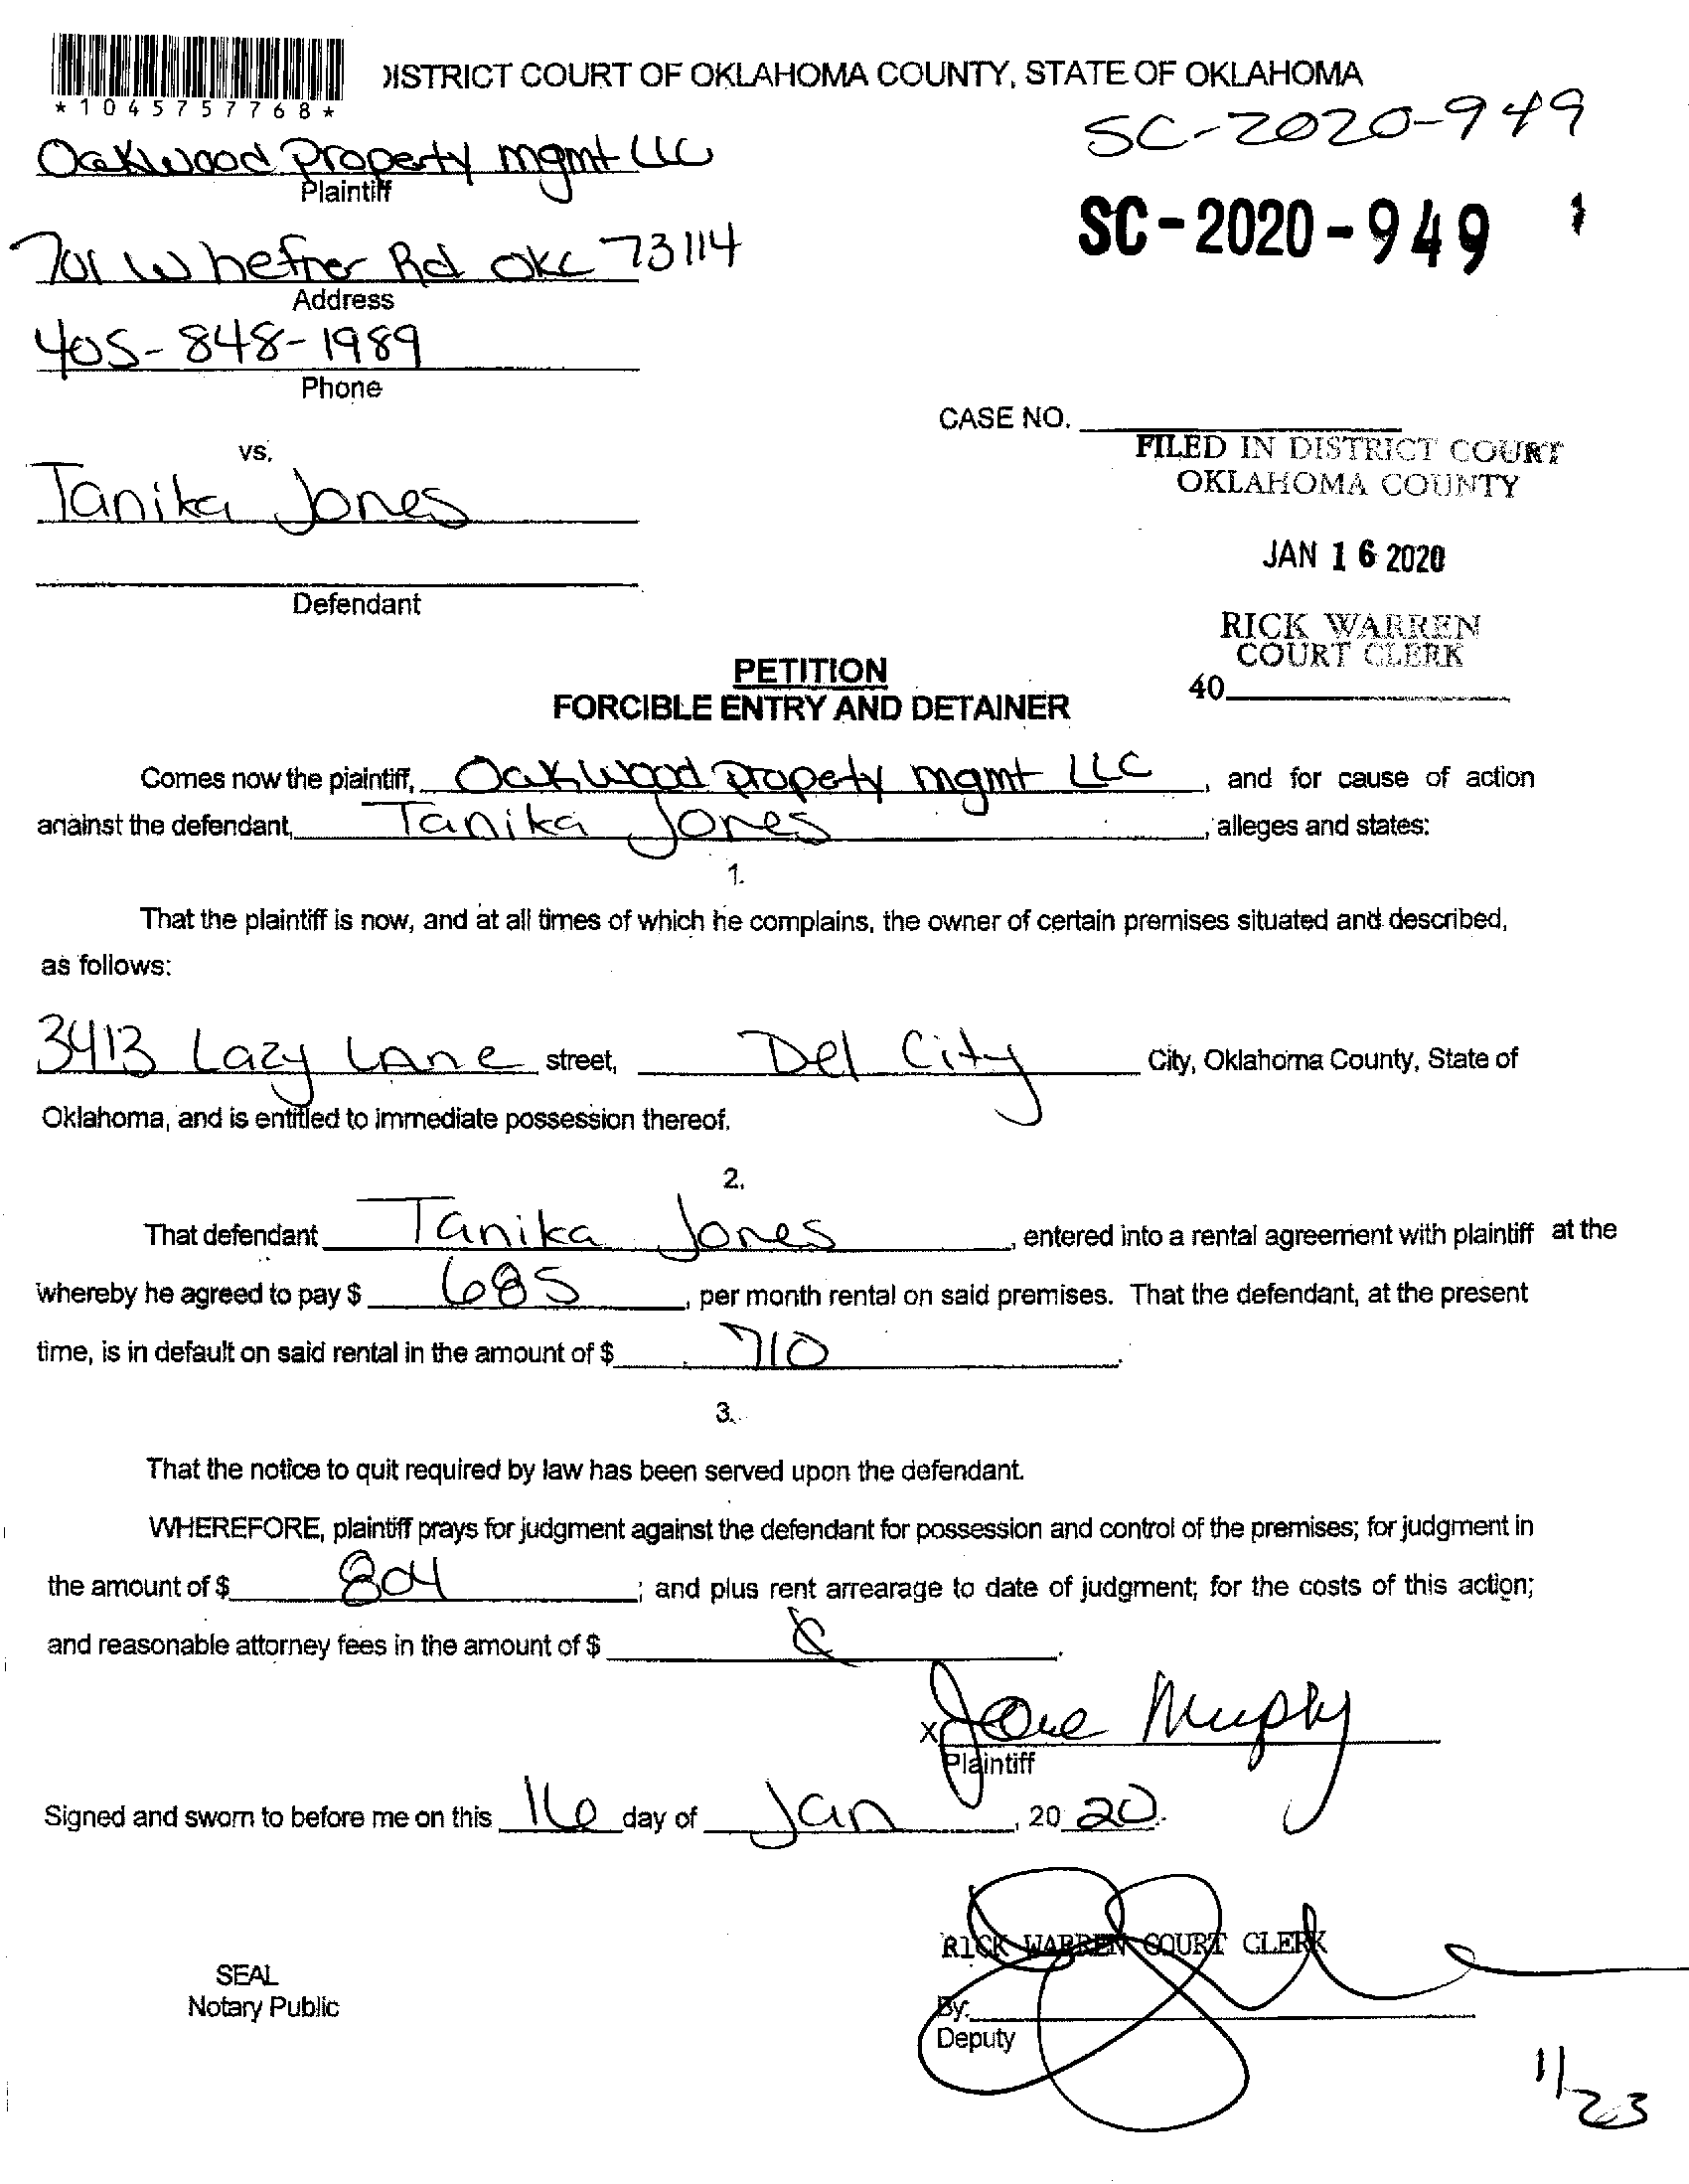 *1045757768*
DISTRICT COURT OF OKLAHOMA COUNTY, STATE OF OKLAHOMA
SC-2020-949
Oakwood Property mgmt LLC
Plaintiff
SC-2020-949
701 W hefner Rd OKC 73114
Address
405-848-1989
Phone
CASE NO.
FILED IN DISTRICT COURT
OKLAHOMA COUNTY
vs.
Tanika Jones
JAN 16 2020
Defendant
RICK WARREN
COURT CLERK
40
PETITION
FORCIBLE ENTRY AND DETAINER
Comes now the plaintiff, Oakwood Propety mgmt LLC, and for cause of action
against the defendant, Tanika Jones, alleges and states:
1.
That the plaintiff is now, and at all times of which he complains, the owner of certain premises situated and described,
as follows:
3413 Lazy Lane street, Del City City, Oklahoma County, State of
Oklahoma, and is entitled to immediate possession thereof.
2.
That defendant Tanika Jones, entered into a rental agreement with plaintiff at the
whereby he agreed to pay $ 685, per month rental on said premises. That the defendant, at the present
time, is in default on said rental in the amount of $ 710.
3.
That the notice to quit required by law has been served upon the defendant.
WHEREFORE, plaintiff prays for judgment against the defendant for possession and control of the premises; for judgment in
the amount of $ 804; and plus rent arrearage to date of judgment; for the costs of this action;
and reasonable attorney fees in the amount of $
x Jane Murphy
Plaintiff
Signed and sworn to before me on this 16 day of Jan, 20 20.
RICK WARREN COURT CLERK
SEAL
Notary Public
By:
Deputy
1/23